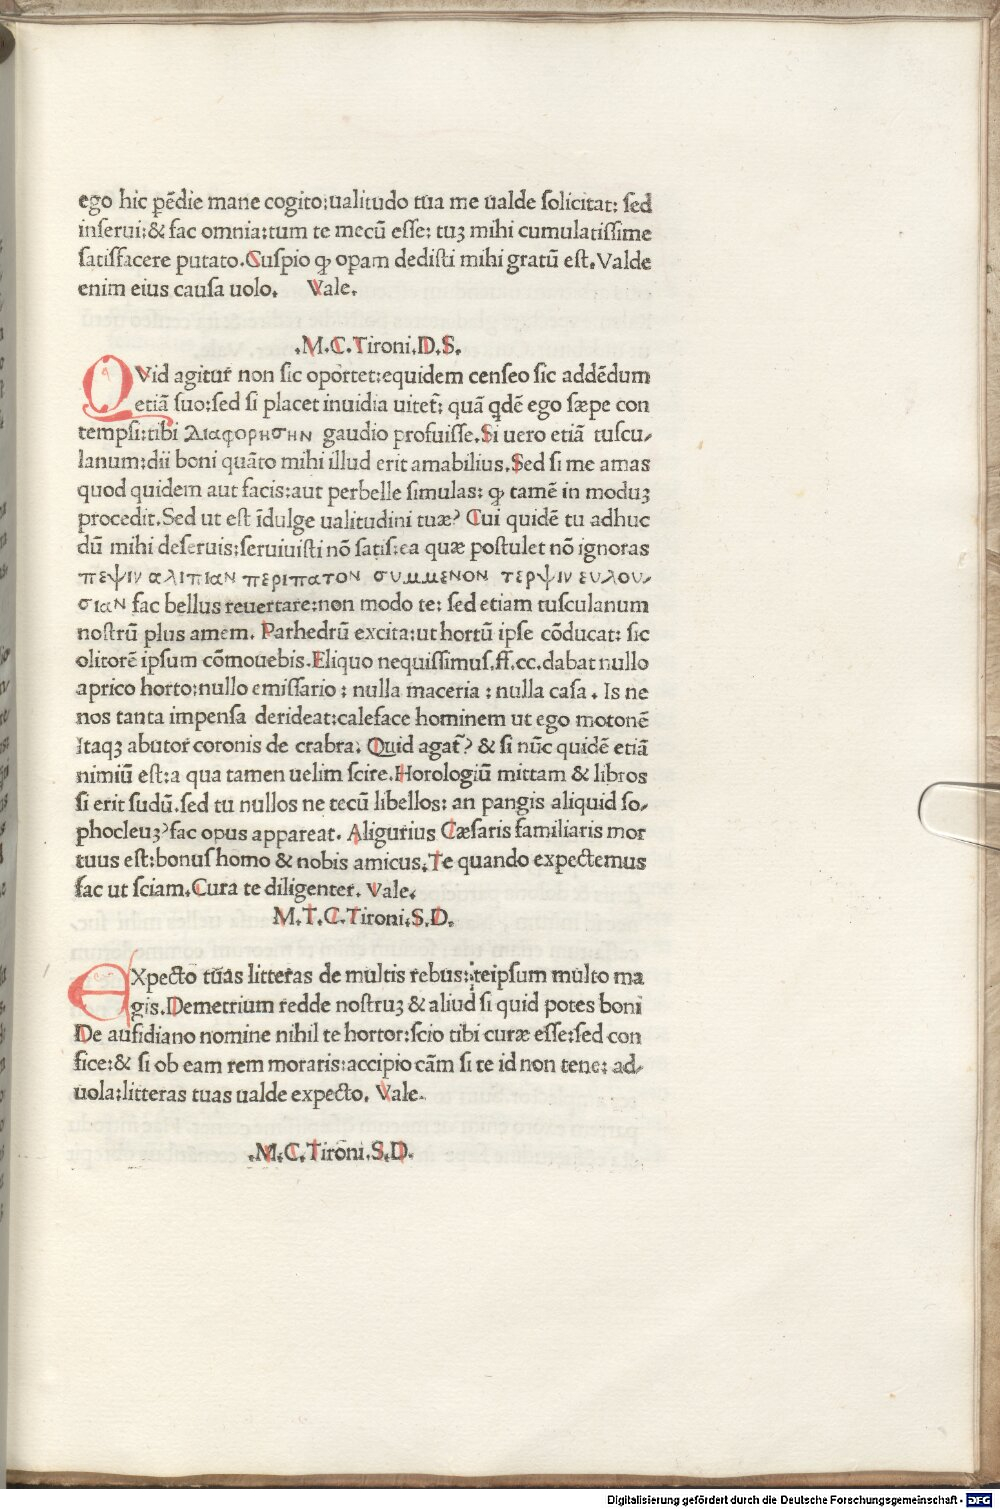 ego hic pēdie mane cogito:ualitudo tua me ualde solicitat: sed
inserui:& fac omnia:tum te mecū esse: tuꝫ mihi cumulatissime
satisfacere putato.Cuspio ꝙ opam dedisti mihi gratū est.Valde
enim eius causa uolo. Vale.
.M.C.Tironi.D.S.
QVid agitur̄ non sic oportet:equidem censeo sic addēdum
etiā suo:sed si placet inuidia uitet̄: quā qdē ego sæpe con
tempsi:tibi Διαφορησην gaudio profuisse.Si uero etiā tuscu-
lanum:dii boni quāto mihi illud erit amabilius.Sed si me amas
quod quidem aut facis:aut perbelle simulas: ꝙ tamē in moduꝫ
procedit.Sed ut est īdulge ualitudini tuæ? Cui quidē tu adhuc
dū mihi deseruis:seruiuisti nō satis:ea quæ postulet nō ignoras
πεψιν αλιπιαν περιπατον συμμενον τερψιν ευλου-
σιαν fac bellus reuertare:non modo te: sed etiam tusculanum
nostrū plus amem. Parhedrū excita:ut hortū ipse cōducat: sic
olitorē ipsum cōmouebis.Eliquo nequissimus.ff.cc.dabat nullo
aprico horto:nullo emissario: nulla maceria: nulla casa. Is ne
nos tanta impensa derideat:caleface hominem ut ego motonē
Itaqꝫ abutor coronis de crabra. Quid agat̄? & si nūc quidē etiā
nimiū est:a qua tamen uelim scire.Horologiū mittam & libros
si erit sudū.sed tu nullos ne tecū libellos: an pangis aliquid so-
phocleuꝫ?fac opus appareat. Aligurius Cæsaris familiaris mor
tuus est:bonus homo & nobis amicus.Te quando expectemus
fac ut sciam.Cura te diligenter. Vale.
M.T.C.Tironi.S.D.
EXpecto tuas litteras de multis rebus:teipsum multo ma
gis.Demetrium redde nostruꝫ & aliud si quid potes boni
De aufidiano nomine nihil te hortor:scio tibi curæ esse:sed con
fice:& si ob eam rem moraris:accipio cām si te id non tene: ad-
uola:litteras tuas ualde expecto. Vale.
.M.C.Tironi.S.D.
Digitalisierung gefördert durch die Deutsche Forschungsgemeinschaft - DFG